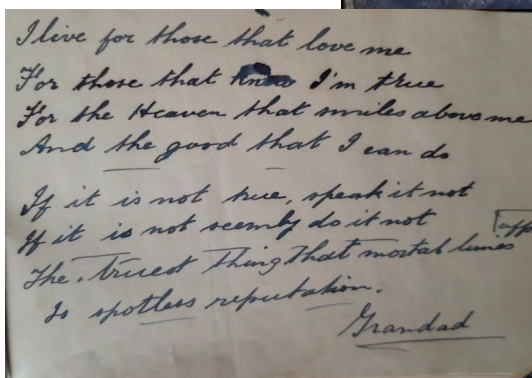 I live for those that love me
For those that know I'm true
For the Heaven that smiles above me
And the good that I can do
If it is not true, speak it not
If it is not seemly do it not
The truest thing that mortal
Is spotless reputation.
Grandad